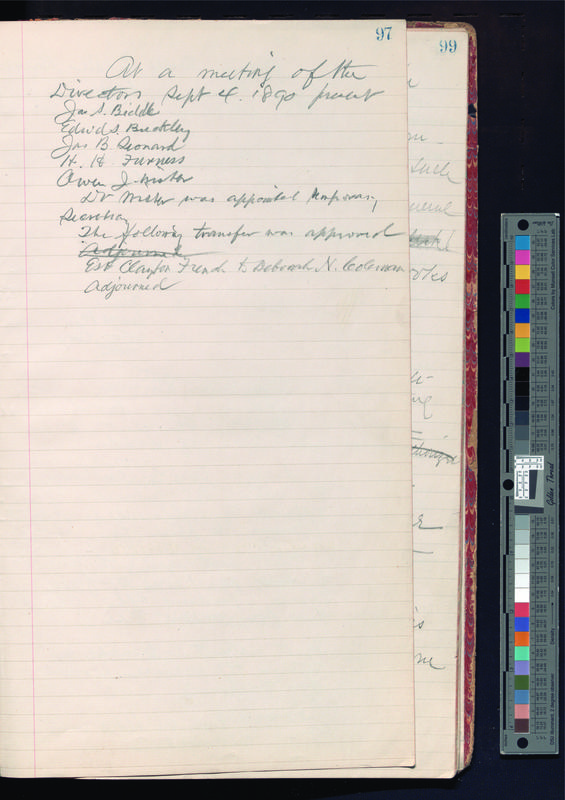 97
At a meeting of the
Directors Sept 4. 1890 present
Jas S. Biddle
Edwd S. Buckley
Jas B Leonard
H. H. Furness
Owen J. Wister
Dr Wister was appointed temporary
Secretary
The following transfer was approved
Adjourned
Est Clayton French to Deborah N. Coleman
Adjourned
99
such